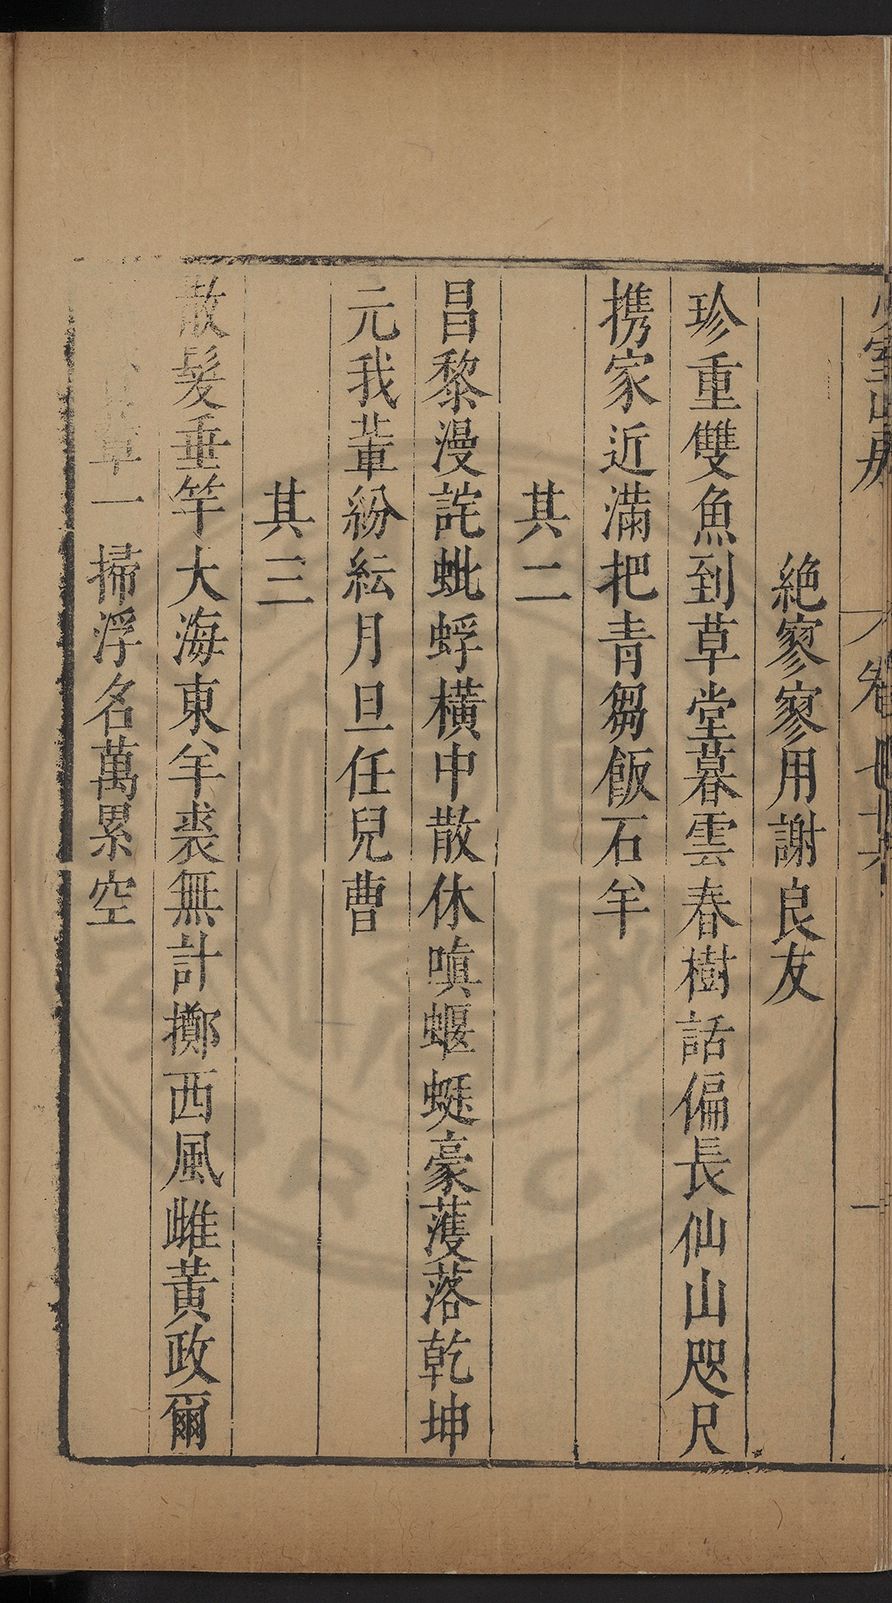 少室山房 卷七十六 一
絶寥寥用謝良友
珍重雙魚到草堂暮雲春樹話偏長仙山咫尺
携家近滿把青芻飯石羊
其二
昌黎漫詫蚍蜉橫中散休嗔蝘蜓豪濩落乾坤
元我輩紛紜月旦任兒曹
其三
散髮垂竿大海東羊裘無計擲西風雌黃政爾
草一掃浮名萬累空